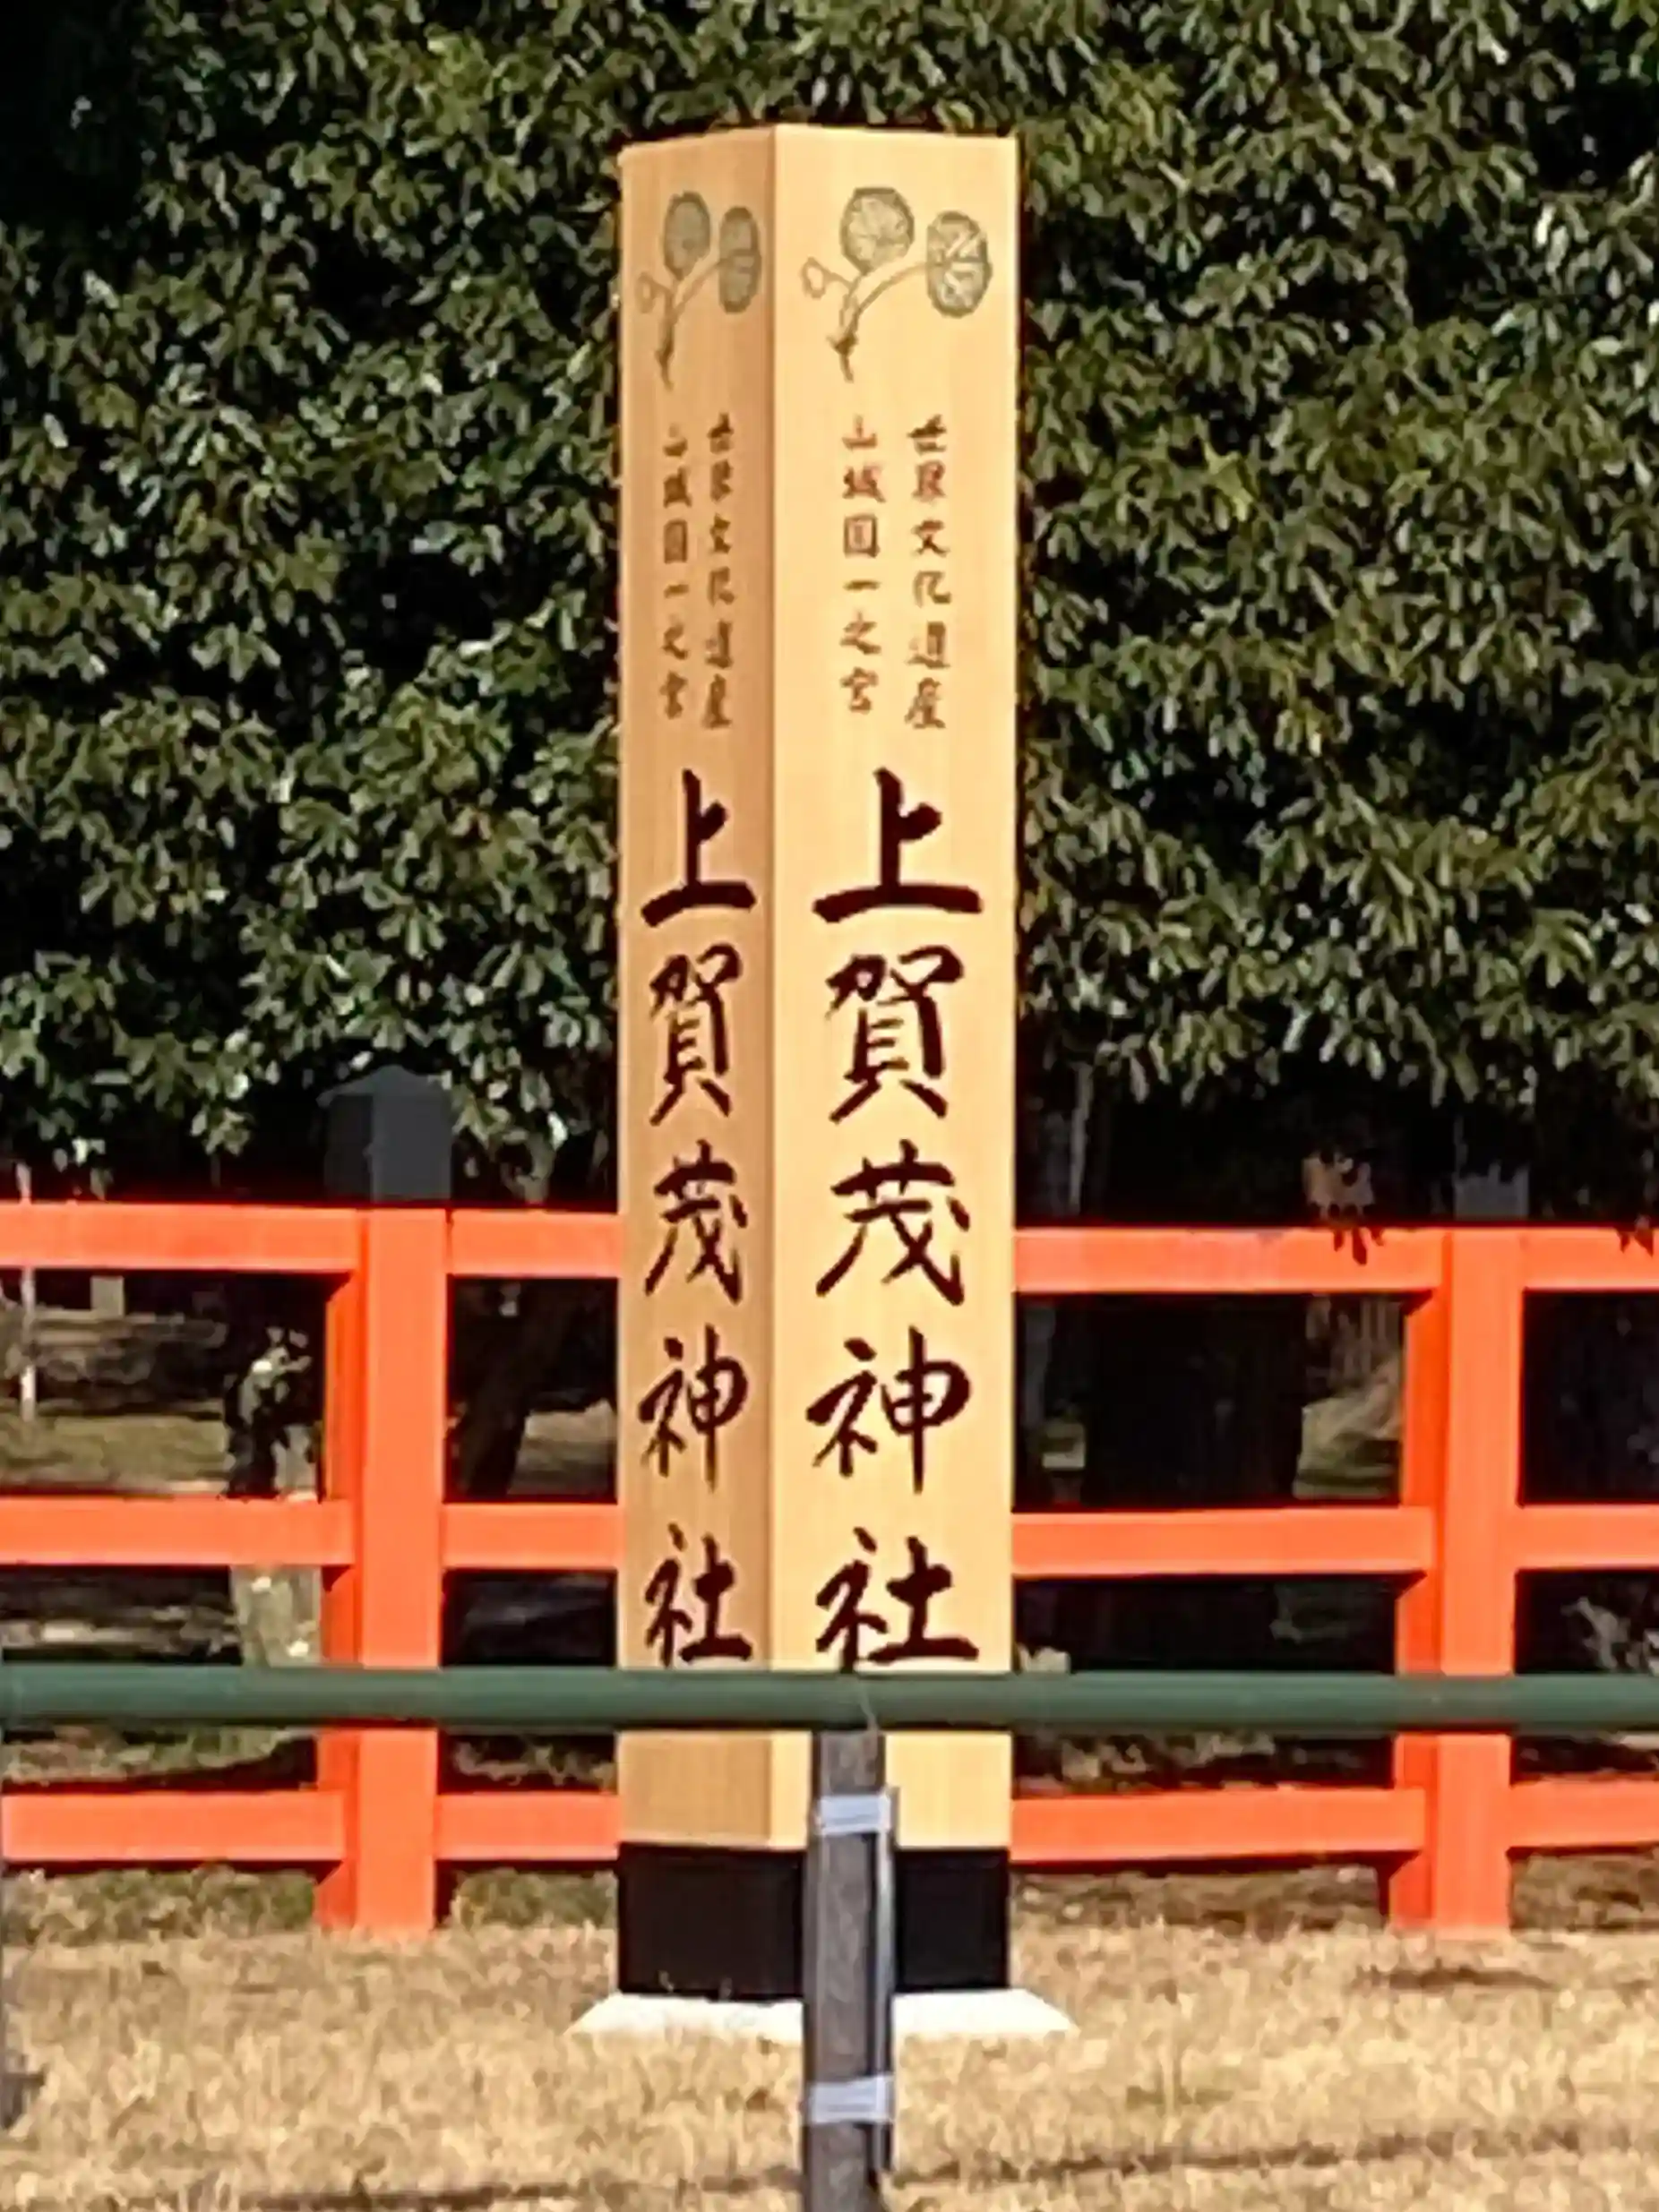 世界文化遺産
山城国一之宮
上賀茂神社
世界文化遺産
山城国一之宮
上賀茂神社